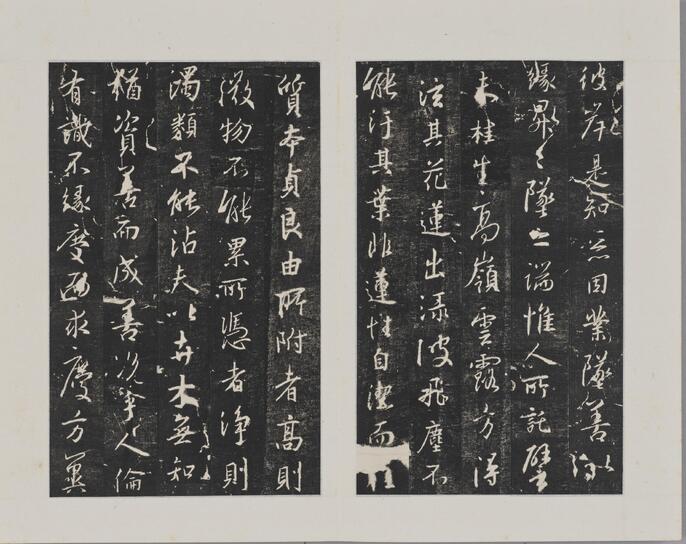 彼岸是知惡因業墜善以
緣昇々墜之端惟人所託譬
夫桂生高嶺雲露方得
泫其花蓮出淥波飛塵不
能汙其葉非蓮性自潔而桂
質本貞良由所附者高則
微物不能累所憑者淨則
濁類不能沾夫以卉木無知
猶資善而成善況乎人倫
有識不緣慶而求慶方冀